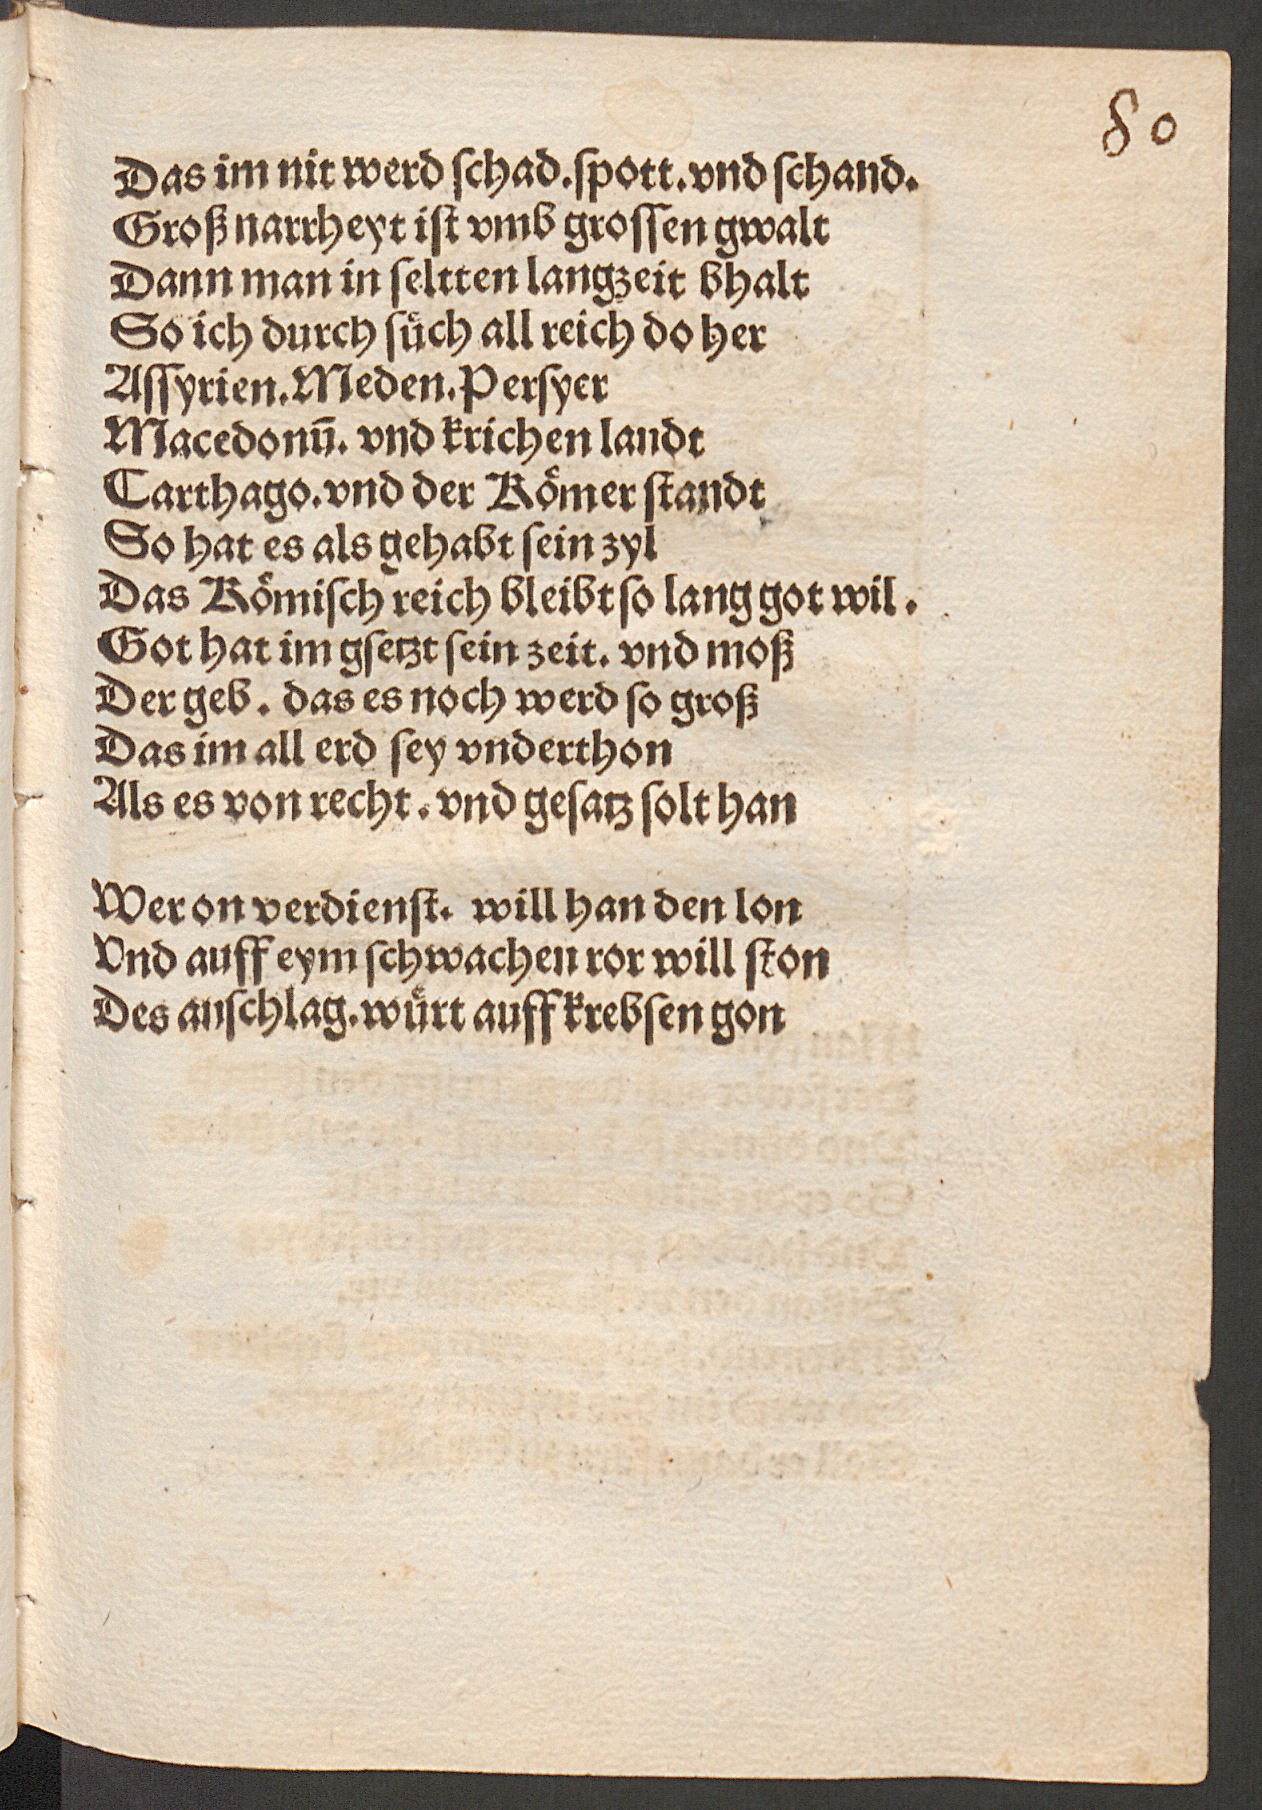 80
Das im nit werd schad.spott.vnd schand.
Groß narrheyt ist vmb grossen gwalt
Dann man in seltten langzeit bhalt
So ich durch suͤch all reich do her
Assyrien.Meden.Persyer
Macedonū. vnd krichen landt
Carthago.vnd der Roͤmer standt
So hat es als gehabt sein zyl
Das Roͤmisch reich bleibt so lang got wil.
Got hat im gsetzt sein zeit. vnd moß
Der geb. das es noch werd so groß
Das im all erd sey vnderthon
Als es von recht. vnd gesatz solt han
Wer on verdienst. will han den lon
Vnd auff eym schwachen ror will ston
Des anschlag.wuͤrt auff krebsen gon